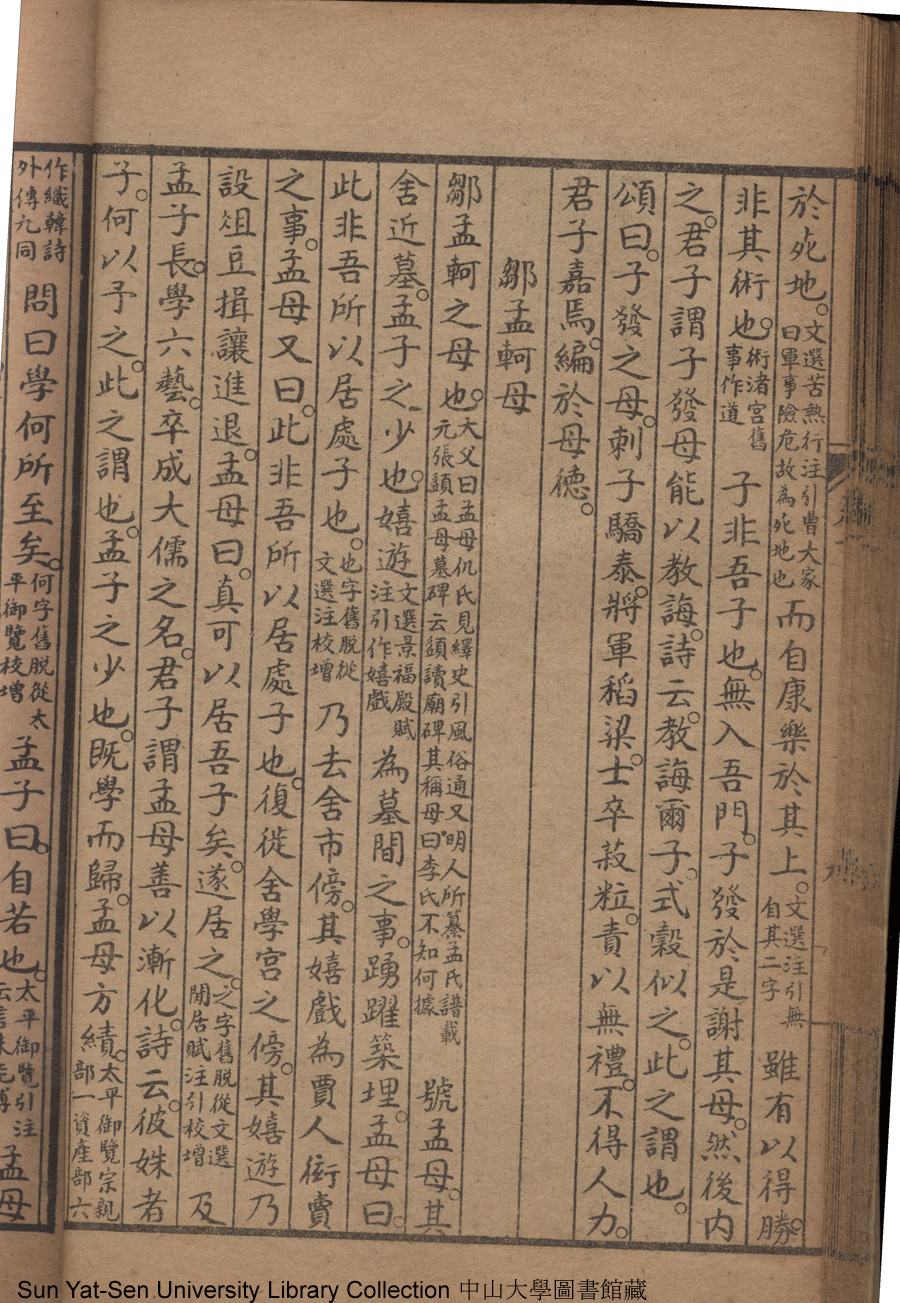 於死地。文選苦熱行注引曹大家曰軍事險危故為死地也而自康樂於其上。文選注引無自其二字雖有以得勝。
非其術也。術渚宮舊事作道子非吾子也。無入吾門。子發於是謝其母。然後內
之。君子謂子發母能以教誨。詩云。教誨爾子。式糓似之。此之謂也。
頌曰。子發之母。刺子驕泰。將軍稻粱。士卒菽粒。責以無禮。不得人力。
君子嘉焉。編於母德。
鄒孟軻母
鄒孟軻之母也。大父曰孟母仉氏見繹史引風俗通又明人所纂孟氏譜載元張䇓孟母墓碑云䇓讀廟碑其稱母曰李氏不知何據號孟母。其
舍近墓。孟子之少也。嬉遊文選景福殿賦注引作嬉戲為墓間之事。踴躍築埋。孟母曰。
此非吾所以居處子也。也字舊脫從文選注校增乃去舍市傍。其嬉戲為賈人衒賣
之事。孟母又曰。此非吾所以居處子也。復徙舍學宮之傍。其嬉遊乃
設俎豆揖讓進退。孟母曰。真可以居吾子矣。遂居之。之字舊脫從文選閒居賦注引校增及
孟子長。學六藝。卒成大儒之名。君子謂孟母善以漸化。詩云。彼姝者
子。何以予之。此之謂也。孟子之少也。既學而歸。孟母方績。太平御覽宗親部一資產部六
作織韓詩外傳九同問曰學何所至矣。何字舊脫從太平御覽校增孟子曰。自若也。太平御覽引注孟母
Sun Yat-Sen University Library Collection 中山大學圖書館藏